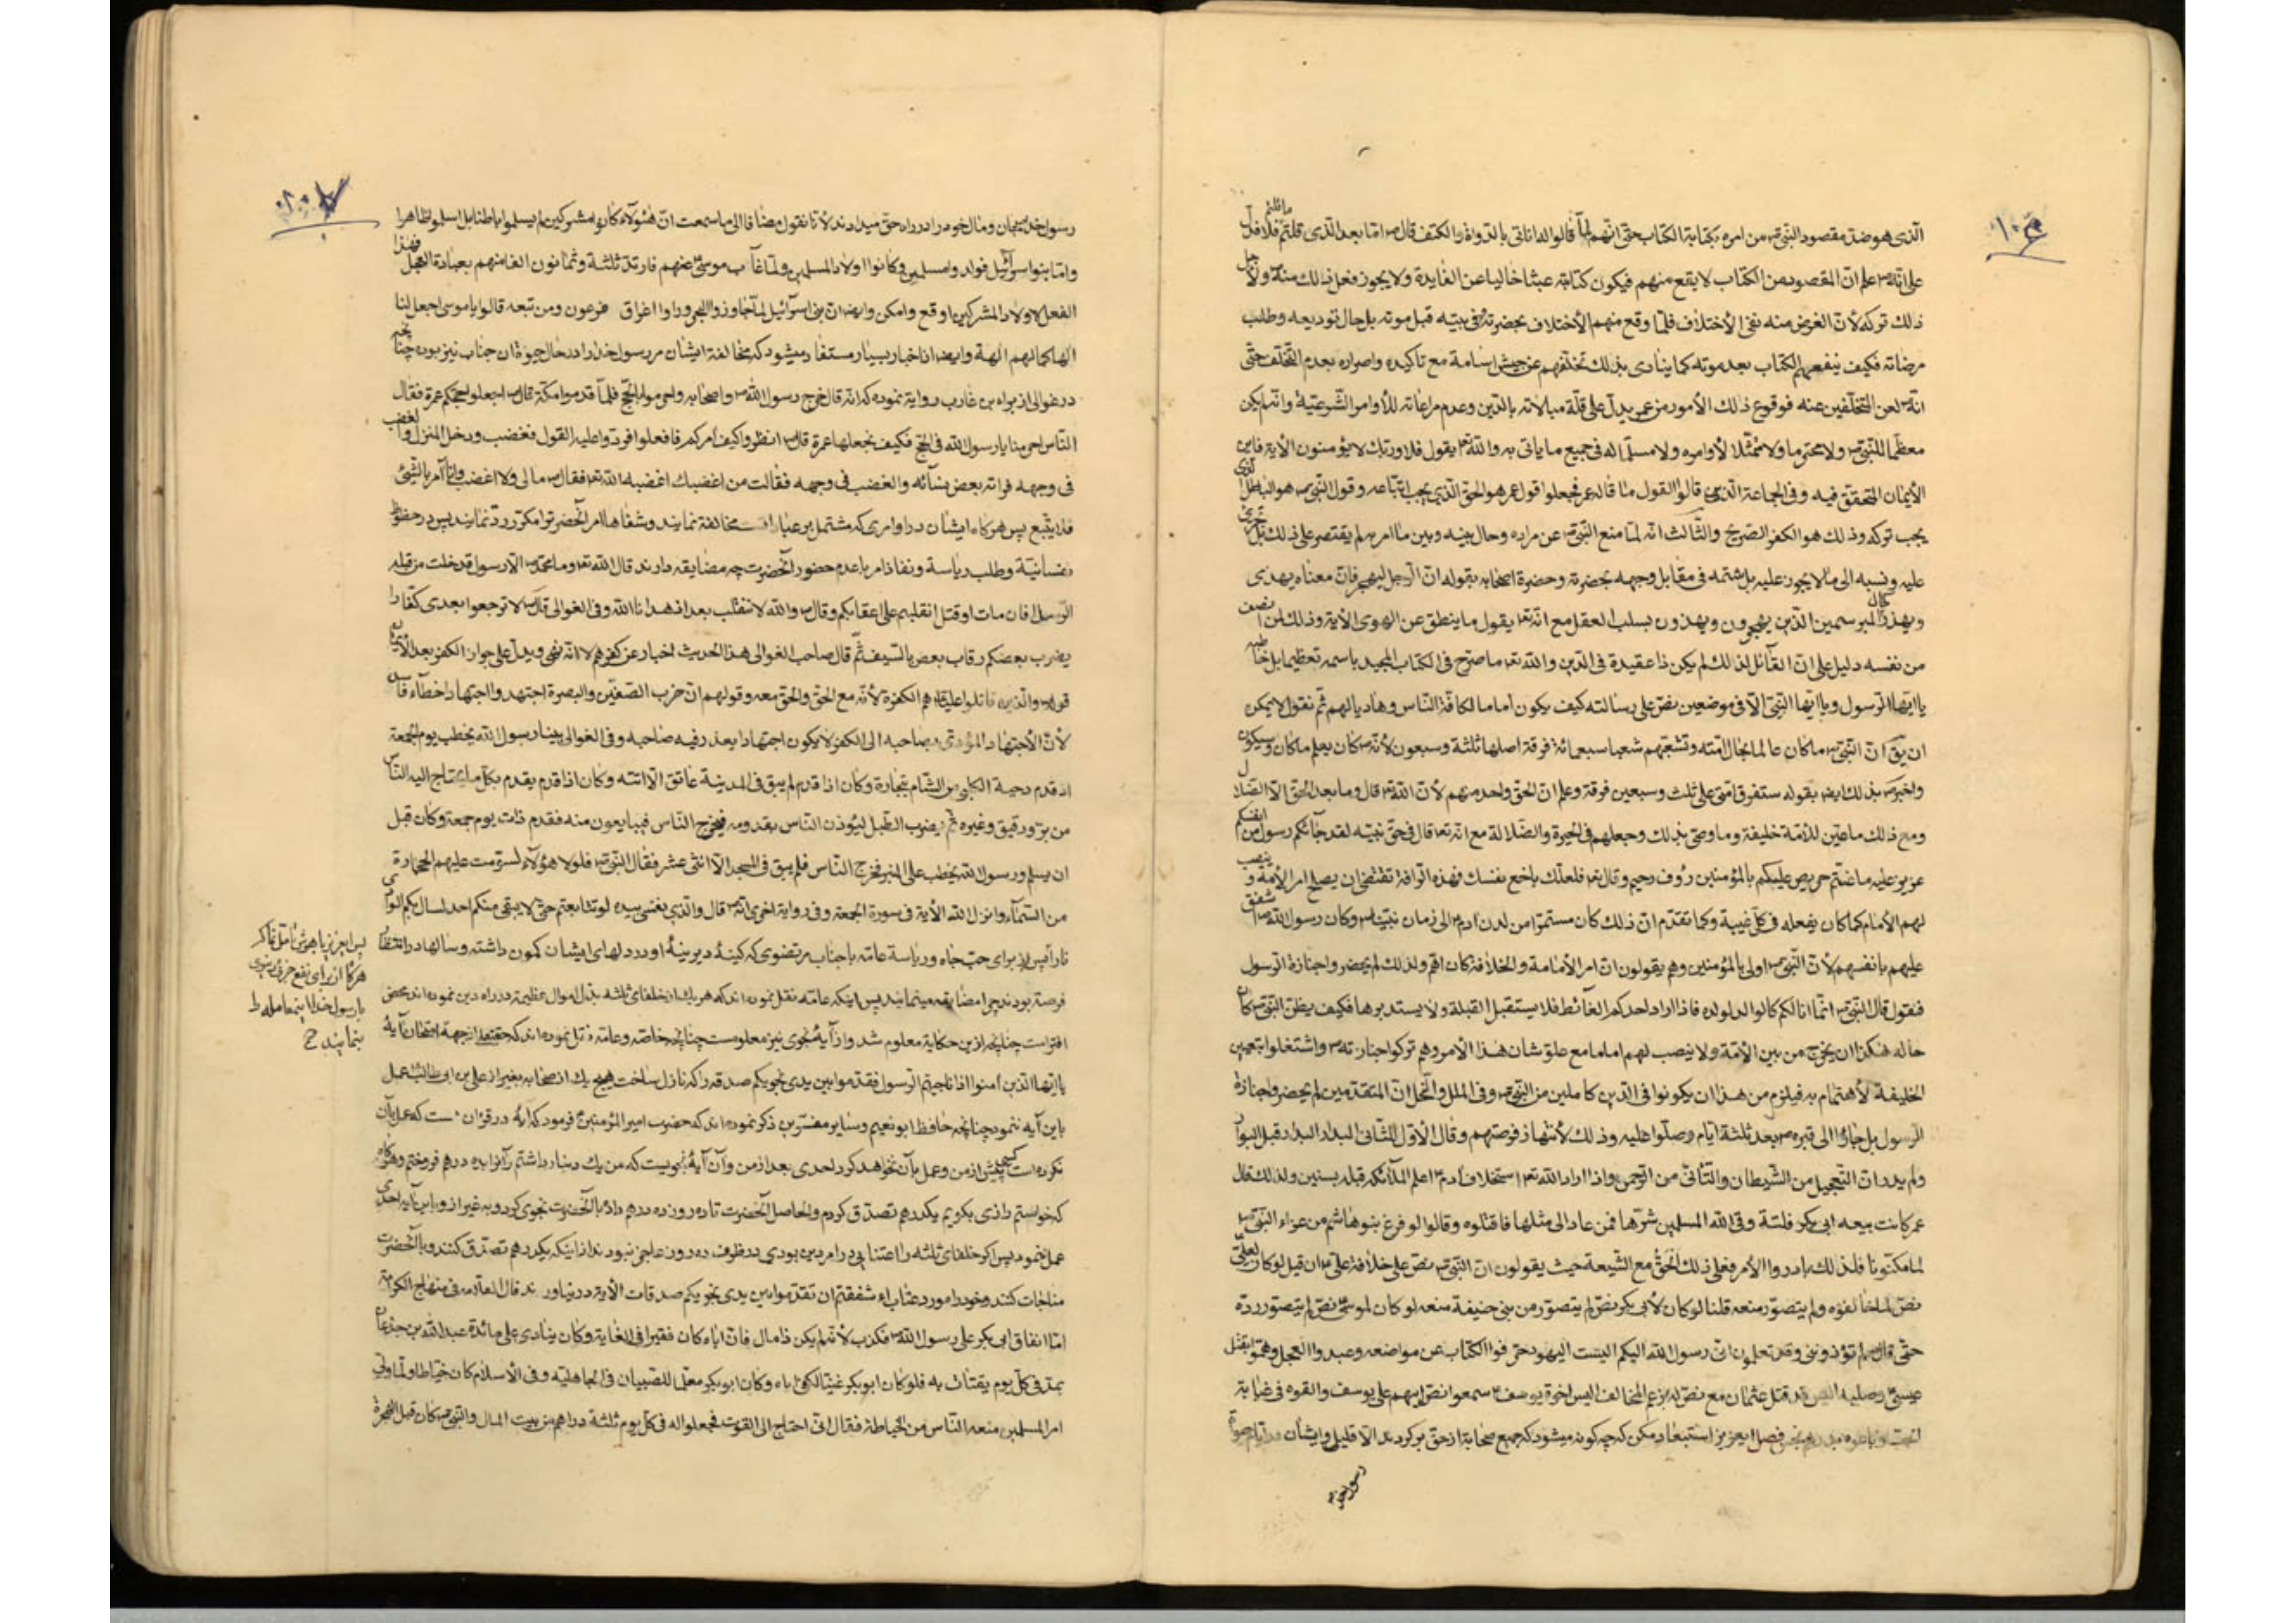 الّذی هو ضدّ مقصود النّبیّ ص من امره بکتابة الکتاب حتّی انّهم لمّا قالوا له انأتی بالدّواة والکتف قال ص امّا بعد الّذی قلتم فلا فدلّ
علی انّه ص علم انّ المقصود من الکتاب لا یقع منهم فیکون کتابته عبثا خالیا عن الفایدة ولا یجوز فعل ذلک منه ولاجل
ذلک ترکه لأنّ الغرض منه نفی الأختلاف فلمّا وقع منهم الأختلاف بحضرته فی بیته قبل موته بل حال تودیعه وطلب
مرضاته فکیف ینفعهم الکتاب بعد موته کما ینادی بذلک تخلّفهم عن جیش اسامة مع تاکیده واصراره بعدم التخلّف حتّی
انّه ص لعن المتخلّفین عنه فوقوع ذلک الأمور من عمر یدلّ علی قلّة مبالاته بالدّین وعدم مراعاته للأوامر الشّرعیّة وانّه لم یکن
معظّما للنّبیّ ص ولا محترما ولا ممتثلا لأوامره ولا مسلّما له فی جمیع ما یأتی به والله تعا یقول فلا وربّک لا یؤمنون الأیة فاین
الأیمان المتحقّق فیه وفی الجماعة الّذین قالوا القول ما قاله عمر فجعلوا قول عمر هو الحقّ الّذی یجب اتّباعه وقول النّبیّ ص هو الباطل الّذی
یجب ترکه وذلک هو الکفر الصّریح والثّالث انّه لمّا منع النّبیّ ص عن مراده وحال بینه وبین ما امر به لم یقتصر علی ذلک بل
علیه ونسبه الی ما لا یجوز علیه بل شتمه فی مقابل وجهه بحضرته وحضرة اصحابه بقوله انّ الرّجل لیهجر فانّ معناه یهذی
من نفسه دلیل علی انّ القائل لذلک لم یکن ذا عقیدة فی الدّین والله تعا ما صرّح فی الکتاب المجید باسمه تعظیما بل خاطبه
یا ایّها الرّسول ویا ایّها النّبیّ الّا فی موضعین نصّ علی رسالته کیف یکون اماما لکافّة النّاس وهادیا لهم ثمّ نقول لا یمکن
ان یقّ انّ النّبیّ ص ما کان عالما بحال امّته وتشعّبهم شعبا سبعمائة فرقة اصلها ثلثة وسبعون لأنّه ص کان یعلم ما کان وسیکون
واخبر ص بذلک ایض بقوله ستفرق امّتی علی ثلث وسبعین فرقة وعلم انّ الحقّ واحد منهم لأنّ الله تعا قال وما بعد الحقّ الّا الضّلال
ومع ذلک ما عیّن للأمّة خلیفة وما وصّی بذلک وجعلهم فی الحیرة والضّلالة مع انّه تعا قال فی حقّ نبیّه لقد جائکم رسول من انفسکم
عزیز علیه ما عنتم حریص علیکم بالمؤمنین رؤف رحیم وقال تعا فلعلّک باخع نفسک فهذه الرّافة تقتضی ان یصلح امر الأمّة وینصب
لهم الأمام کما کان یفعله فی کلّ غیبة وکما تقدّم انّ ذلک کان مستمرّا من لدن ادم الی زمان نبیّنا ص وکان رسول الله ص اشفق
علیهم بانفسهم لأنّ النّبیّ ص اولی بالمؤمنین وهم یقولون انّ امر الأمامة والخلافة کان اهمّ ولذلک لم یحضروا جنازة الرّسول
فنقول قال النّبیّ ص انّما انا لکم کالوالد لولده فاذا اراد احدکم الغائط فلا یستقبل القبلة ولا یستدبرها فکیف یظنّ النّبیّ ص کان
حاله هکذا ان یخرج من بین الأمّة ولا ینصب لهم اماما مع علوّ شان هذا الأمر وهم ترکوا جنازته ص واشتغلوا بتعیین
الخلیفة لأهتمام به فیلزم من هذا ان یکونوا فی الدّین کاملین من النّبیّ ص وفی الملل والنّحل انّ المتقدّمین لم یحضروا جنازة
الرّسول بل جاؤا الی قبره ص بعد ثلثة ایّام وصلّوا علیه وذلک لأنتهاز فرصتهم وقال الأوّل للثّانی البدار البدار قبل البوار
ولم یدر انّ التّعجیل من الشّیطان والتّأنّی من الرّحمن واذا اراد الله تعا استخلاف آدم اعلم الملائکة قبله بسنین ولذلک قال
عمر کانت بیعه ابی بکر فلتة وقی الله المسلمین شرّها فمن عاد الی مثلها فاقتلوه وقالوا لو فرغ بنو هاشم من عزاء النّبیّ ص
فلذلک بادروا الأمر فعلی ذلک الحقّ مع الشّیعة حیث یقولون انّ النّبیّ ص نصّ علی خلافة علیّ ع ان قیل لو کان لعلیّ
نصّ لما خالفوه ولم یتصوّر منعه قلنا لو کان لأبی بکر نصّ لم یتصوّر من بنی حنیفة منعه لو کان لموسی نصّ لم یتصوّر ردّه
حتّی قال لم تؤذوننی وقد تعلمون انّی رسول الله الیکم الیست الیهود حرّفوا الکتاب عن مواضعه وعبدوا العجل وهمّوا بقتل
عیسی وصلبه الیس قد قتل عثمان مع نصّ له بزعم المخالف الیس اخوة یوسف سمعوا نصّ ابیهم علی یوسف والقوه فی غیابة
فصل ایعزیز استبعاد مکن که چه کونه میشود که جمیع صحابة از حقّ برکردند الّا قلیل وایشان
رسول خدا
رسول خدا بجهان ومال خود را در راه حقّ میدادند لأنّا نقول مضافا الی ما سمعت انّ هٔؤلآء کانوا مشرکین لم یسلموا باطنا بل اسلموا ظاهرا
وامّا بنوا سرآئیل فولدوا مسلمین وکانوا اولاد المسلمین ولمّا غاب موسی عنهم فارتدّ ثلثة وثمانون الفا منهم بعبادة العجل فهذا
الفعل لاولاد المشرکین اوقع وامکن وایض انّ بنی اسرآئیل لمّا جاوزوا البحر وراوا اغراق فرعون ومن تبعه قالوا یا موسی اجعل لنا
الها کما لهم الهة وایض از اخبار بسیار مستفاد میشود که مخالفة ایشان مر رسول خدا را در حال حیوة ان جناب نیز بوده چنانچه
در غوالی از براء بن عازب روایة نموده که انّه قال خرج رسول الله ص واصحابه واحرموا بالحجّ فلمّا قدموا مکّة قال ص اجعلوا حجّکم عمرة فقال
النّاس احرمنا یا رسول الله فی الحجّ فکیف نجعلها عمرة قال ص انظروا کیف امرکم فافعلوا فردّوا علیه القول فغضب ودخل المنزل والغضب
فی وجهه فراته بعض نسآئه والغضب فی وجهه فقالت من اغضبک اغضبه الله تعا فقال ص مالی ولا اغضب وانا آمر بالشّیئ
فلا یتّبع پس هرکاه ایشان در اوامری که مشتمل بر عبادات مخالفة نمایند وشفاها امر آنحضر ترا مکرّر ردّ نمایند پس در حظوظ
نفسانیّة وطلب ریاسة ونفاذ امر با عدم حضور آنحضرت چه مضایقه دارند قال الله تعا وما محمّد ص الّا رسول قد خلت من قبله
الرّسل افان مات او قتل انقلبتم علی اعقابکم وقال ص والله لا ننقلب بعد اذ هدانا الله وفی الغوالی قال ص لا ترجعوا بعدی کفّارا
یضرب بعضکم رقاب بعض بالسّیف ثمّ قال صاحب الغوالی هذا الحدیث اخبار عن کفرهم لا انّه نهی ویدلّ علی جواز الکفر بعد الأیمان
قوله والّذین قاتلوا علیّا هم الکفرة لأنّه مع الحقّ والحقّ معه وقولهم انّ حزب الصّفّین والبصرة اجتهد واجتهاد اخطآء فاسد
لأنّ الأجتهاد المؤدّی بصاحبه الی الکفر لا یکون اجتهادا یعذر فیه صاحبه وفی الغوالی بینا رسول الله یخطب یوم الجمعة
اذ قدم دحیة الکلبی من الشّام بتجارة وکان اذا قدم لم یبق فی المدینة عاتق الّا اتته وکان اذا قدم یقدم بکلّ ما یحتاج الیه النّاس
من برّ ودقیق وغیره ثمّ یضرب الطّبل لیؤذن النّاس بقدومه فیخرج النّاس فیبایعون منه فقدم ذات یوم جمعة وکان قبل
ان یسلم ورسول الله یخطب علی المنبر فخرج النّاس فلم یبق فی المسجد الّا اثنی عشر فقال النّبیّ ص فلولا هؤلآء لسوّمت علیهم الحجارة
من السّمآء وانزل الله الأیة فی سورة الجمعة وفی روایة اخری انّه ص قال والّذی نفسی بیده لو تتابعتم حتّی لا یبقی منکم احد لسال بکم الوادی
نارا پس از برای حبّ جاه وریاسة عامّه با جناب مرتضوی که کینهٔ دیرینهٔ او در دلهای ایشان کمون داشته وسالها در انتظار
فرصة بودند چرا مضایقه مینمایند پس اینکه عامّه نقل نموده اند که هر یک از خلفای ثلثه بذل اموال عظیمة در راه دین نموده اند محض
افتراست چنانچه از ین حکایة معلوم شد واز آیهٔ نجوی نیز معلومست چنانچه خاصّه وعامّه نقل نموده اند که حقتعا از جهة امتحان آیهٔ
یا ایّها الّذین آمنوا اذا ناجیتم الرّسول فقدّموا بین یدی نجویکم صدقه را که نازل ساخت هیچ یک از صحابه بغیر از علی بن ابی طالب عمل
باین آیه ننمود چنانچه حافظ ابو نعیم وسایر مفسّرین ذکر نموده اند که حضرت امیر المؤمنین فرمود که آیهٔ در قرآن است که عمل بآن
نکرده است کسی پیش از من وعمل بآن نخواهد کرد احدی بعد از من وآن آیهٔ نجویست که من یک دینار داشتم آنرا بده درهم فروختم وهرکاه
که خواستم رازی بکویم یکدرهم تصدّق کردم والحاصل آنحضرت تا ده روز ده درهم داد با آنحضرت نجوی کرد وبه غیر از او باین آیه احدی
عمل ننمود پس اکر خلفای ثلثه را اعتنایی در امر دین بودی در ظرف ده روز عاجز نبودند از اینکه یکدرهم تصدّق کنند وبا آنحضرت
مناجات کنند وخود را مورد عتاب ءاشفقتم ان تقدّموا بین یدی نجویکم صدقات الأیة در نیاورند قال العلّامه فی منهاج الکرامة
امّا انفاق ابی بکر علی رسول الله ص فکذب لأنّه لم یکن ذا مال فانّ اباه کان فقیرا فی الغایة وکان ینادی علی مائدة عبد الله بن جذعان
بمدّ فی کلّ یوم یقتات به فلو کان ابو بکر غنیّا لکفی اباه وکان ابو بکر معلّما للصّبیان فی الجاهلیّه وفی الأسلام کان خیّاطا ولمّا ولی
امر المسلمین منعه النّاس من الخیاطة فقال انّی احتاج الی القوت فجعلوا له فی کلّ یوم ثلثة دراهم من بیت المال والنّبیّ ص کان قبل الهجرة
پس ایعزیز با هوش تامّل نماکر
هرکاه از برای نفع جزوی دنیوی
با رسول خدا اینمعامله را
بنمایند ح